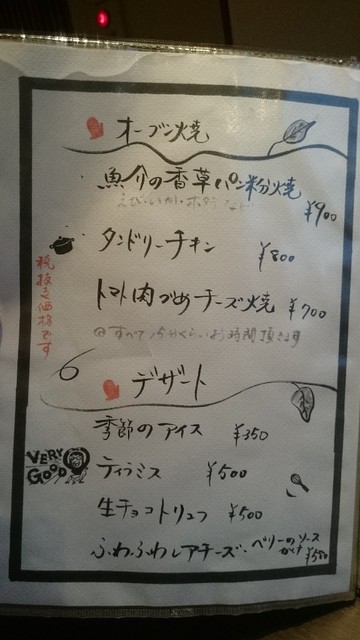 オーブン焼
魚介の香草パン粉焼
えび・いか・ホタテなど
¥900
タンドリーチキン ¥800
トマト肉づめチーズ焼 ¥700
税抜き価格です
デザート
季節のアイス ¥350
VERY GOOD
ティラミス ¥500
生チョコトリュフ ¥500
ふわふわレアチーズ・ベリーのソースがけ ¥550